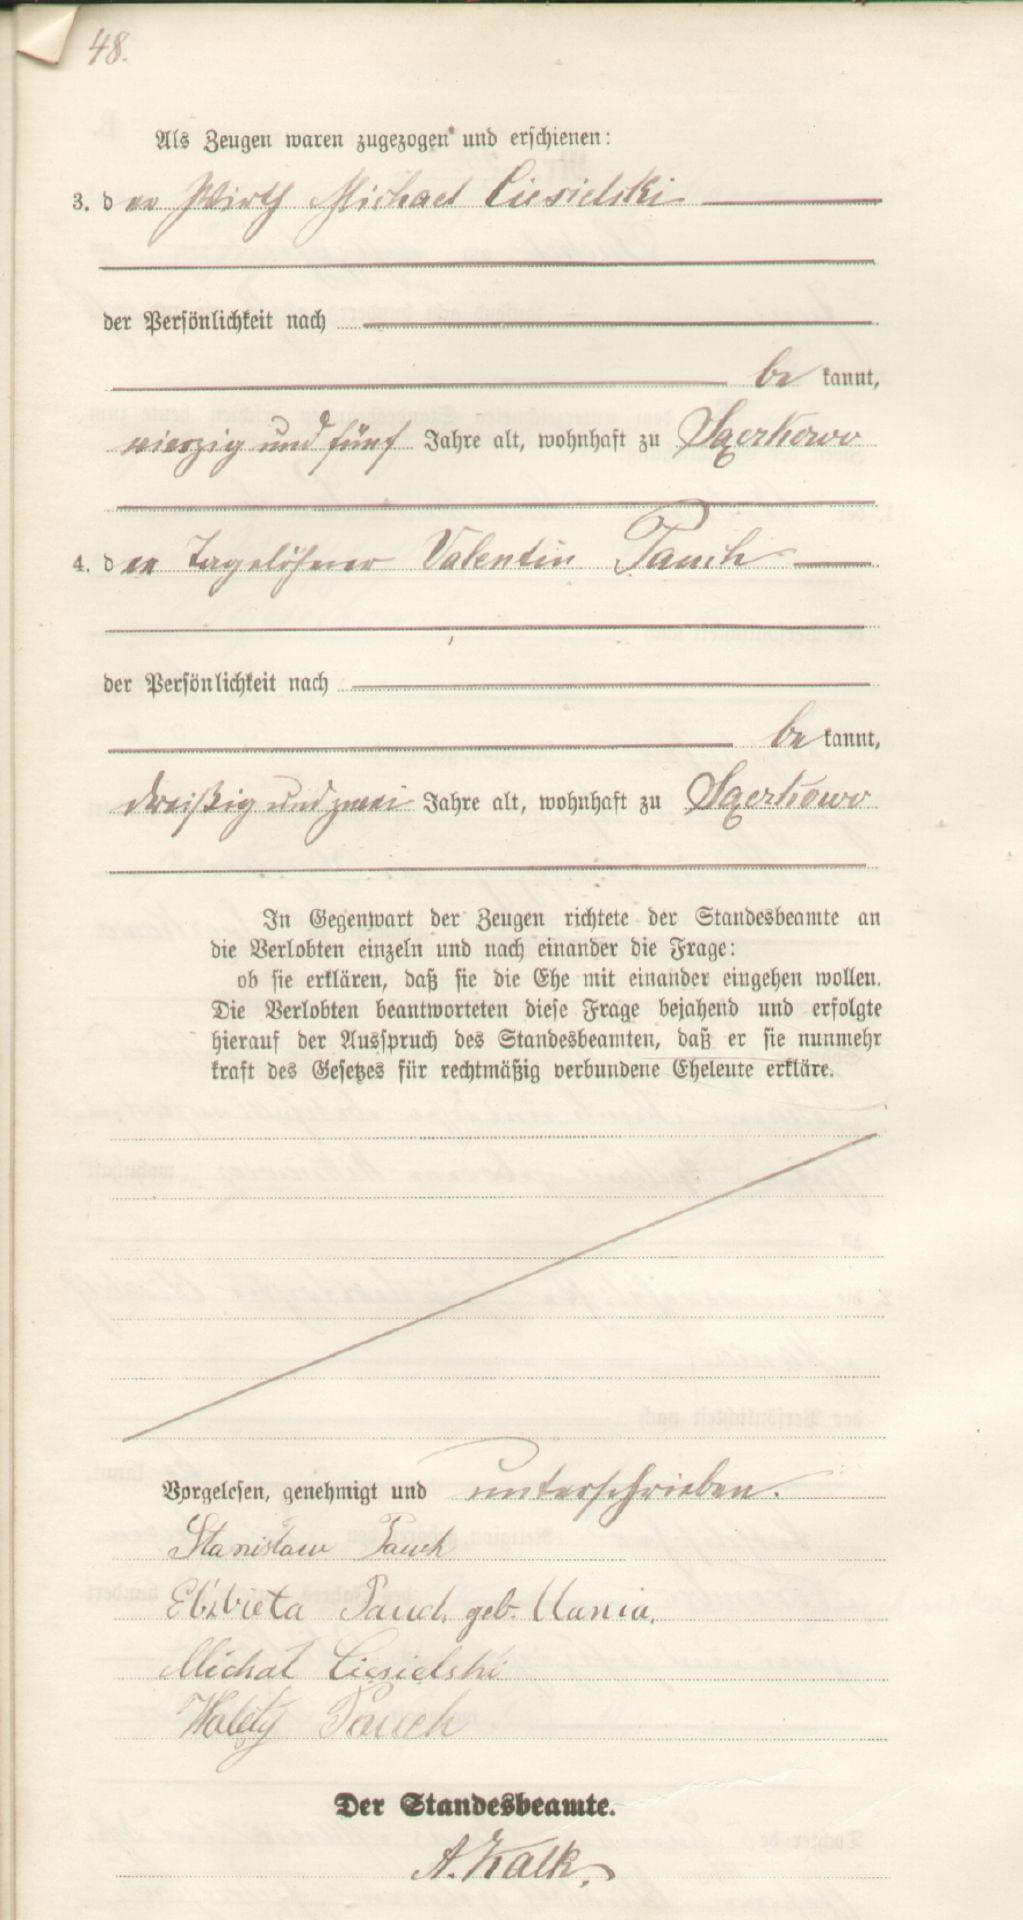 48.
Als Zeugen waren zugezogen und erschienen:
3. der Wirth Michael Ciesielski
der Persönlichkeit nach
be kannt,
vierzig und fünf Jahre alt, wohnhaft zu
4. der Tagelöhner Valentin Pauch
der Persönlichkeit nach
be kannt,
dreißig und zwei Jahre alt, wohnhaft zu
In Gegenwart der Zeugen richtete der Standesbeamte an
die Verlobten einzeln und nach einander die Frage:
ob sie erklären, daß sie die Ehe mit einander eingehen wollen.
Die Verlobten beantworteten diese Frage bejahend und erfolgte
hierauf der Ausspruch des Standesbeamten, daß er sie nunmehr
kraft des Gesetzes für rechtmäßig verbundene Eheleute erkläre.
Vorgelesen, genehmigt und unterschrieben.
Stanisław Pauch
Elżbieta Pauch geb. Mania.
Michał Ciesielski
Walęty Pauch
Der Standesbeamte.
A. Kalk.